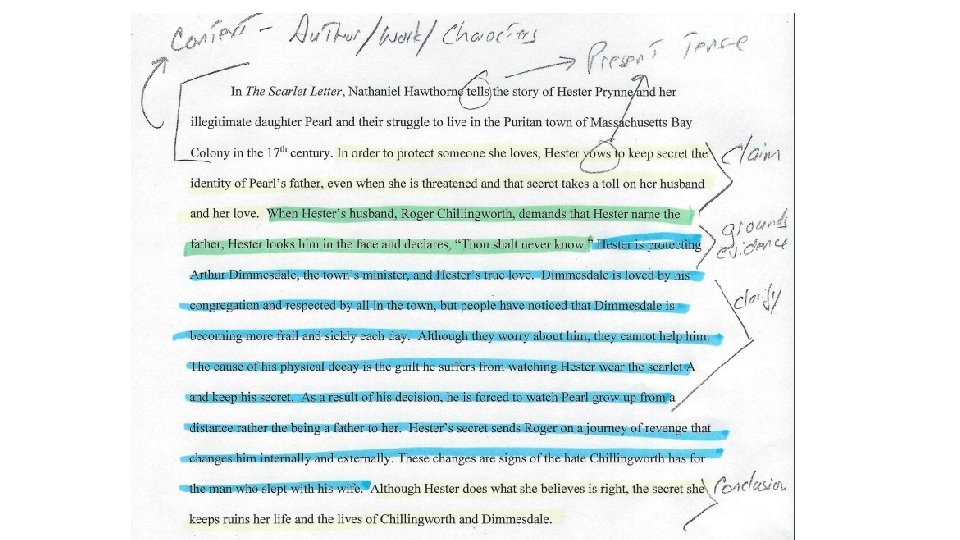 Context - Author/Work/Characters
Present Tense
In The Scarlet Letter, Nathaniel Hawthorne tells the story of Hester Prynne and her
illegitimate daughter Pearl and their struggle to live in the Puritan town of Massachusetts Bay
Colony in the 17th century. In order to protect someone she loves, Hester vows to keep secret the
claim
identity of Pearl's father, even when she is threatened and that secret takes a toll on her husband
and her love. When Hester's husband, Roger Chillingworth, demands that Hester name the
grounds
father, Hester looks him in the face and declares, "Thou shalt never know." Hester is protecting
evidence
Arthur Dimmesdale, the town's minister, and Hester's true love. Dimmesdale is loved by his
congregation and respected by all in the town, but people have noticed that Dimmesdale is
clarify
becoming more frail and sickly each day. Although they worry about him, they cannot help him.
The cause of his physical decay is the guilt he suffers from watching Hester wear the scarlet A
and keep his secret. As a result of his decision, he is forced to watch Pearl grow up from a
distance rather the being a father to her. Hester's secret sends Roger on a journey of revenge that
changes him internally and externally. These changes are signs of the hate Chillingworth has for
the man who slept with his wife. Although Hester does what she believes is right, the secret she
Conclusion
keeps ruins her life and the lives of Chillingworth and Dimmesdale.